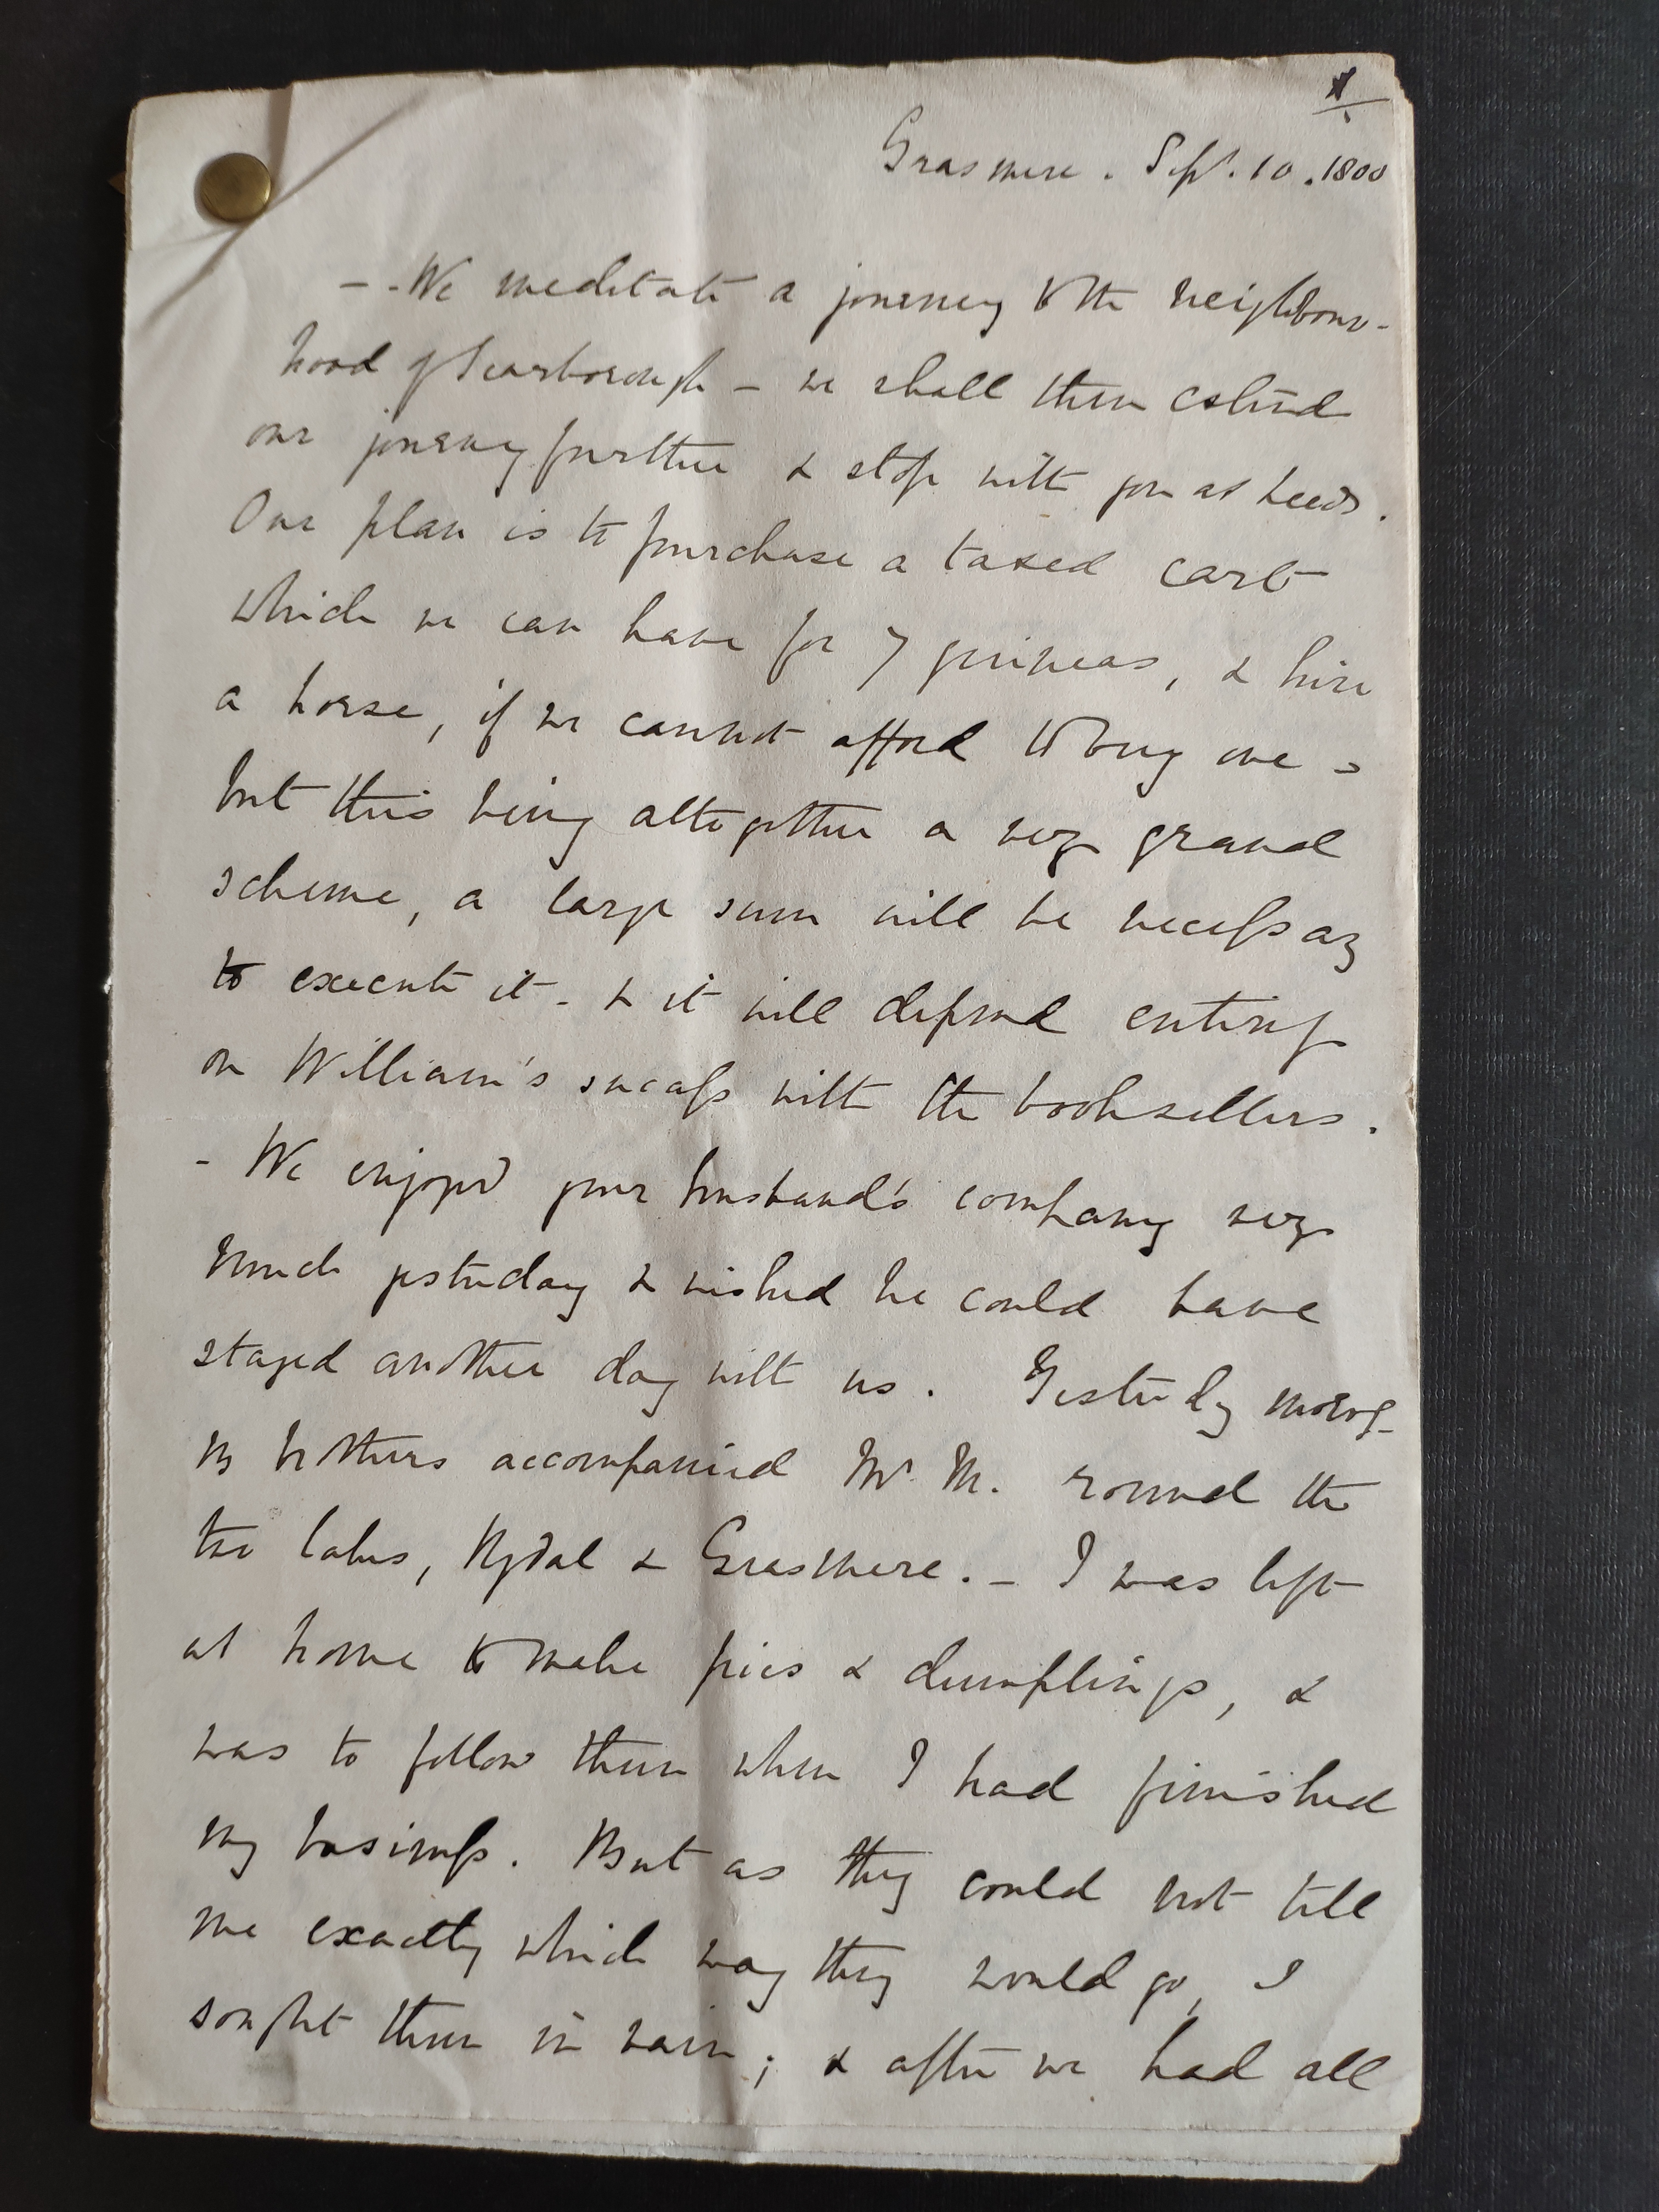 1
Grasmere. Sept. 10. 1800
- - We meditate a journey to the neighbour-
hood of Scarborough - we shall then extend
our journey further & stop with you at Leeds.
Our plan is to purchase a taxed cart
which we can have for 7 guineas, & hire
a horse, if we cannot afford to buy one -
but this being altogether a very grand
scheme, a large sum will be necessary
to execute it - & it will depend entirely
on William's success with the booksellers.
- We enjoyed your husband's company very
much yesterday & wished he could have
stayed another day with us. Yesterdy morng
my brothers accompanied Mr. M. round the
two lakes, Rydal & Grasmere. - I was left
at home to make pies & dumplings, &
was to follow them when I had finished
my business. But as they could not tell
me exactly which way they would go, I
sought them in vain; & after we had all